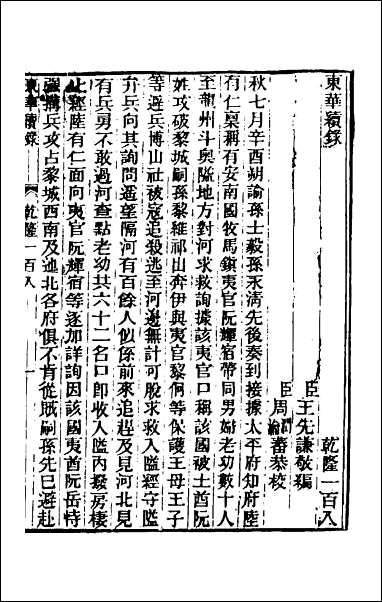 東華續錄 乾隆一百八
臣王先謙敬編
臣周瀹蕃恭校
秋七月辛酉朔諭孫士毅孫永清先後奏到接據太平府知府陸
有仁稟稱有安南國牧馬鎮夷官阮輝宿帶同男婦老幼數十人
至龍州斗奧隘地方對河求救詢據該夷官口稱該國被土酋阮
姓攻破黎城嗣孫黎維祁出奔伊與夷官黎侗等保護王母王子
等避兵博山社被寇追殺逃至河邊無計可脫求救入隘經守隘
弁兵向其詢問遙望隔河有百餘人似係前來追趕及見河北見
有兵勇不敢過河查點老幼共六十二名口即收入隘內撥房棲
止經陸有仁面向夷官阮輝宿等逐加詳詢因該國夷酋阮岳恃
強搆兵攻占黎城西南及迤北各府俱不肯從賊嗣孫先已避赴
東華續錄 乾隆一百八